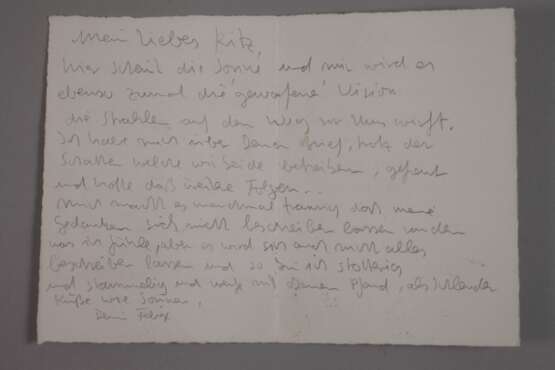 Mein liebes Kitz,
hier scheint die Sonne und mir wird es
ebenso zumal die Vision
die Strahlen auf den Weg zu uns wirft.
Ich habe mich über Deinen Brief, trotz der
welche wir beide betreiben, gefreut
und hoffe daß weitere folgen..
mich macht es manchmal traurig daß meine
Gedanken sich nicht beschreiben lassen und
was ich fühle, aber es wird sich auch nicht alles
beschreiben lassen und so bin ich
und und mit Deinem Pfand, als
Küße wie Sonnen,
Dein Felix